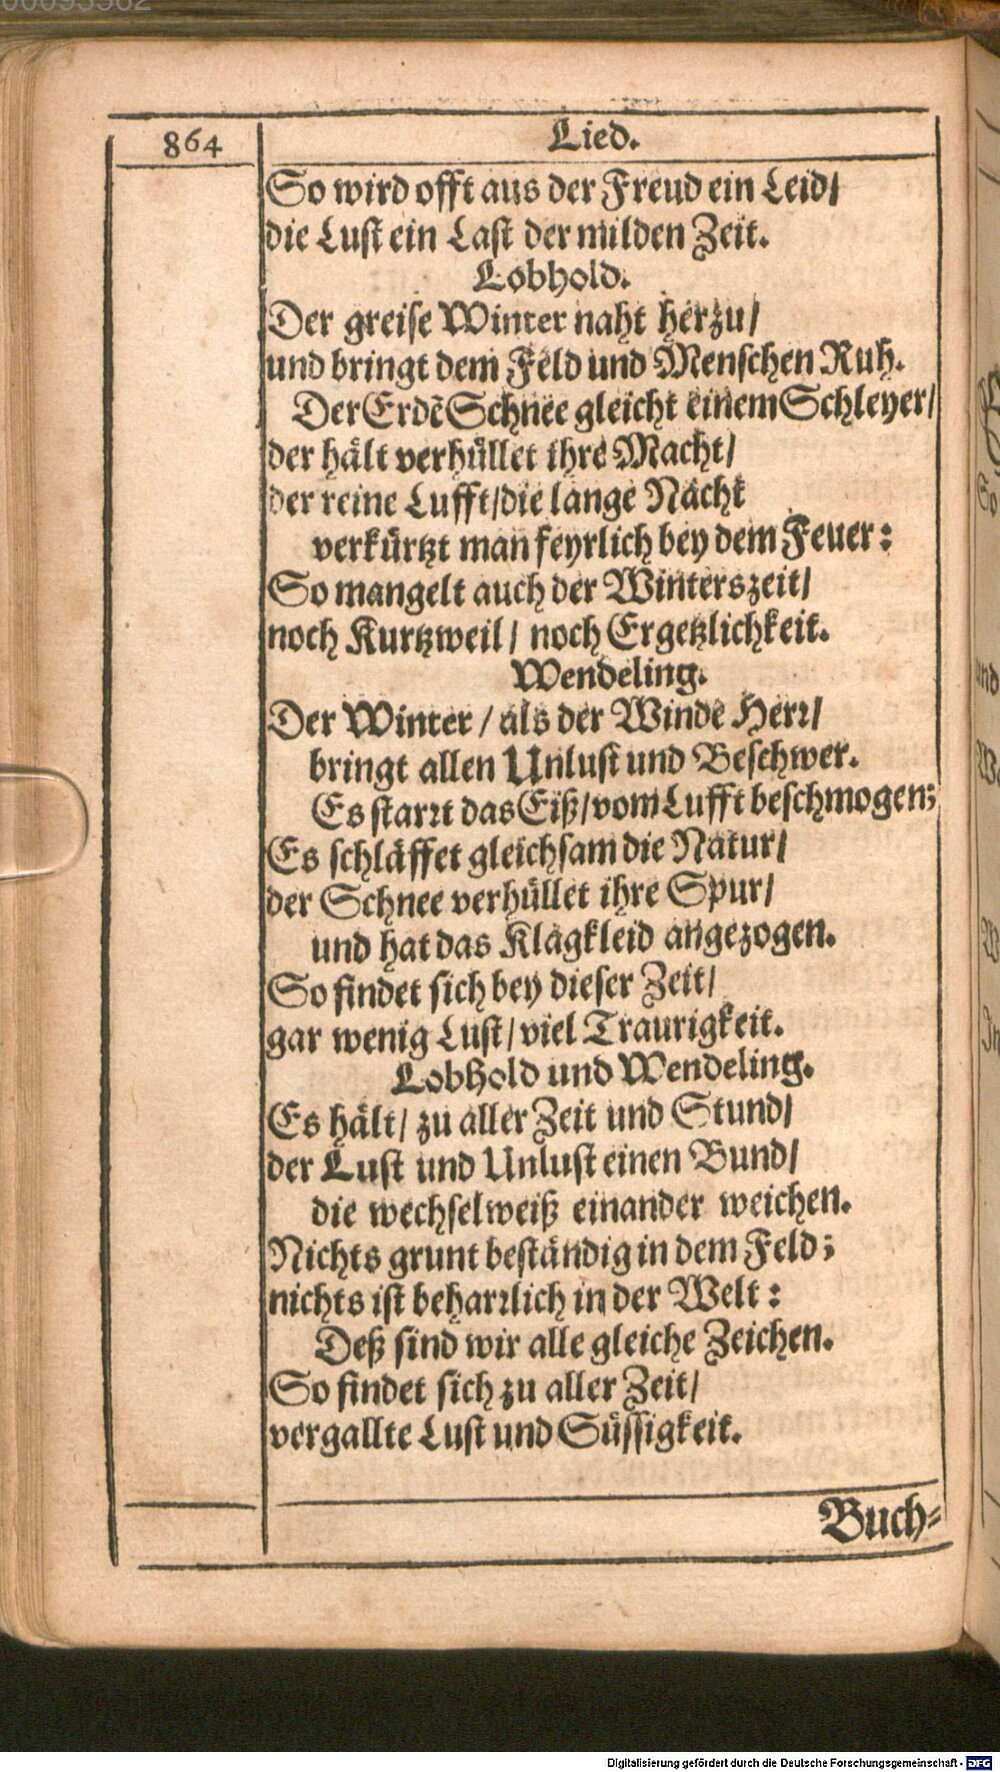 864
Lied.
So wird offt aus der Freud ein Leid/
die Lust ein Last der milden Zeit.
Lobhold.
Der greise Winter naht herzu/
und bringt dem Feld und Menschen Ruh.
Der Erdẽ Schnee gleicht einem Schleyer/
der hält verhüllet ihre Macht/
der reine Lufft/die lange Nacht
verkürtzt man feyrlich bey dem Feuer:
So mangelt auch der Winterszeit/
noch Kurtzweil/ noch Ergetzlichkeit.
Wendeling.
Der Winter / als der Winde Herr/
bringt allen Unlust und Beschwer.
Es starrt das Eiß/vom Lufft beschmogen;
Es schläffet gleichsam die Natur/
der Schnee verhüllet ihre Spur/
und hat das Klagkleid angezogen.
So findet sich bey dieser Zeit/
gar wenig Lust/viel Traurigkeit.
Lobhold und Wendeling.
Es hält/ zu aller Zeit und Stund/
der Lust und Unlust einen Bund/
die wechselweiß einander weichen.
Nichts grunt beständig in dem Feld;
nichts ist beharrlich in der Welt:
Deß sind wir alle gleiche Zeichen.
So findet sich zu aller Zeit/
vergallte Lust und Süssigkeit.
Buch-
Digitalisierung gefördert durch die Deutsche Forschungsgemeinschaft - DFG